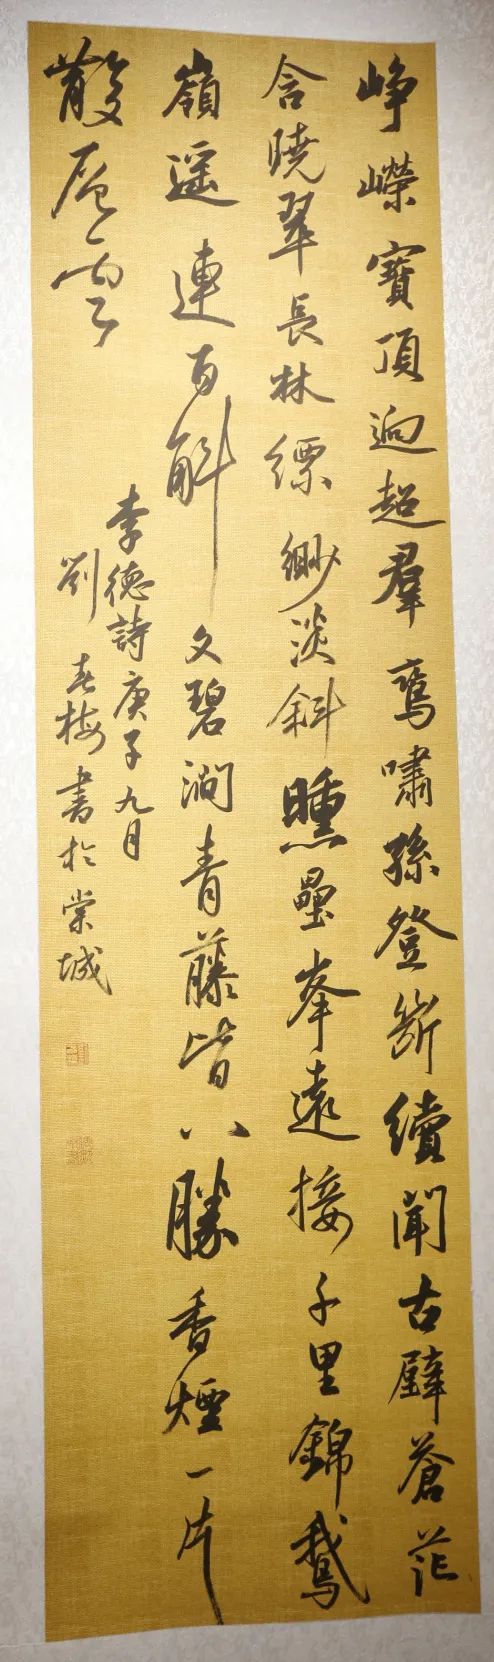 峥嶸寶頂迥超羣鸾嘯孫登断續聞古壁蒼茫
含曉翠長林縹緲淡斜曛壘峯遠接千里錦鵝
嶺遥連百斛文碧澗青藤皆八勝香煙一片
散层雲
李德詩庚子九月
劉春梅書於棠城